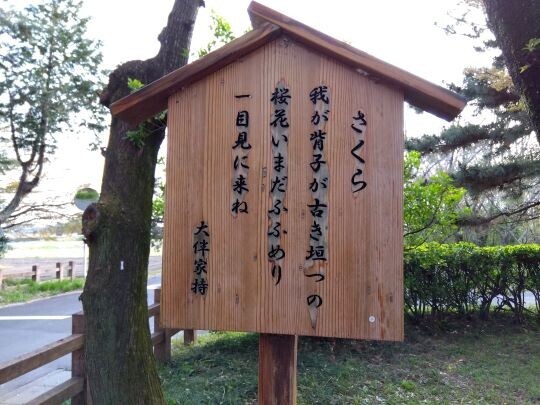 さくら
我が背子が古き垣つの
桜花いまだふふめり
一目見に来ね
大伴家持